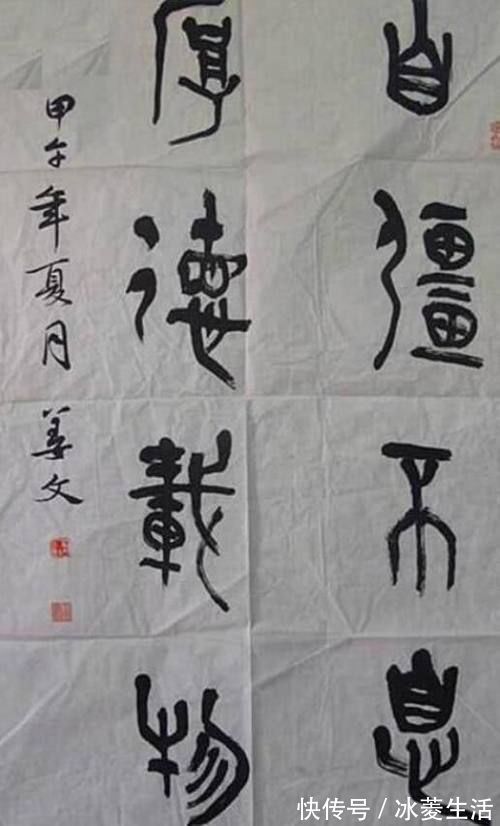 自彊不息
厚德載物
甲午年夏月 姜文
快传号/冰菱生活